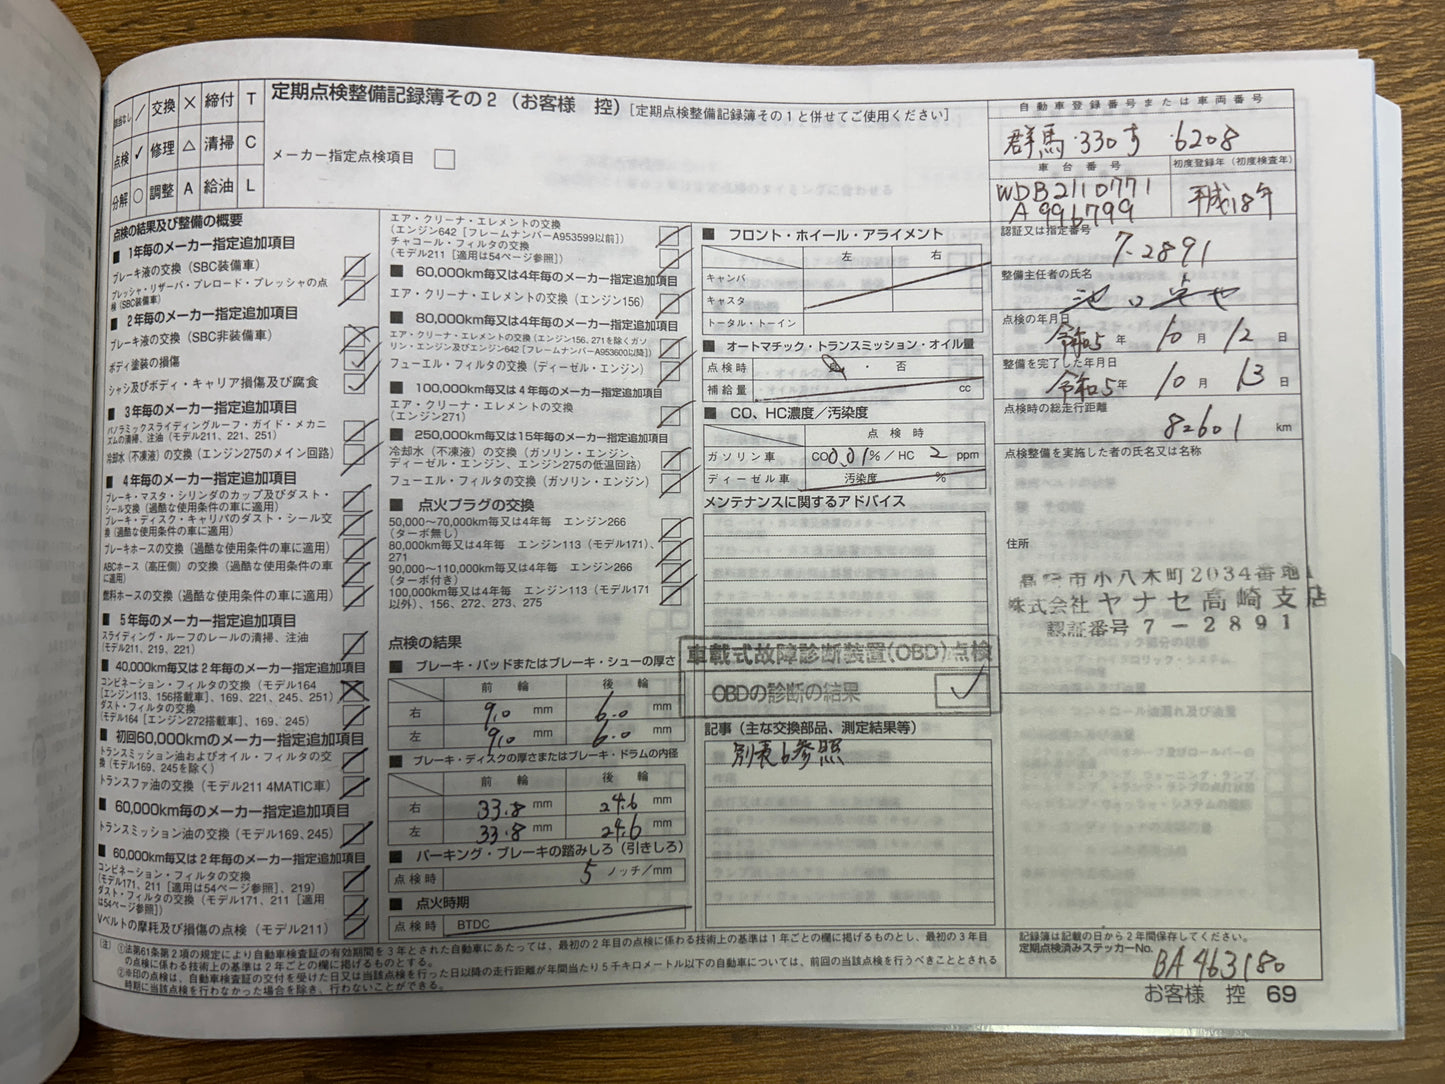 該当なし / 交換 × 締付 T
点検 ✓ 修理 △ 清掃 C
分解 ○ 調整 A 給油 L
定期点検整備記録簿その2（お客様 控）［定期点検整備記録簿その1と併せてご使用ください］
メーカー指定点検項目 □
点検の結果及び整備の概要
■ 1年毎のメーカー指定追加項目
ブレーキ液の交換（SBC装備車）
プレッシャ・リザーバ・プレロード・プレッシャの点
検（SBC装備車）
■ 2年毎のメーカー指定追加項目
ブレーキ液の交換（SBC非装備車）
ボディ塗装の損傷
シャシ及びボディ・キャリア損傷及び腐食
■ 3年毎のメーカー指定追加項目
パノラミックスライディングルーフ・ガイド・メカニ
ズムの清掃、注油（モデル211、221、251）
冷却水（不凍液）の交換（エンジン275のメイン回路）
■ 4年毎のメーカー指定追加項目
ブレーキ・マスタ・シリンダのカップ及びダスト・
シール交換（過酷な使用条件の車に適用）
ブレーキ・ディスク・キャリパのダスト・シール交
換（過酷な使用条件の車に適用）
ブレーキホースの交換（過酷な使用条件の車に適用）
ABCホース（高圧側）の交換（過酷な使用条件の車
に適用）
燃料ホースの交換（過酷な使用条件の車に適用）
■ 5年毎のメーカー指定追加項目
スライディング・ルーフのレールの清掃、注油
（モデル211、219、221）
■ 40,000km毎又は2年毎のメーカー指定追加項目
コンビネーション・フィルタの交換（モデル164
［エンジン113、156搭載車］、169、221、245、251）
ダスト・フィルタの交換
（モデル164［エンジン272搭載車］、169、245）
■ 初回60,000kmのメーカー指定追加項目
トランスミッション油およびオイル・フィルタの交
換（モデル169、245を除く）
トランスファ油の交換（モデル211 4MATIC車）
■ 60,000km毎のメーカー指定追加項目
トランスミッション油の交換（モデル169、245）
■ 60,000km毎又は2年毎のメーカー指定追加項目
コンビネーション・フィルタの交換
（モデル171、211［適用は54ページ参照］、219）
ダスト・フィルタの交換（モデル171、211［適用
は54ページ参照］）
Vベルトの摩耗及び損傷の点検（モデル211）
エア・クリーナ・エレメントの交換
（エンジン642［フレームナンバーA953599以前］）
チャコール・フィルタの交換
（モデル211［適用は54ページ参照］）
■ 60,000km毎又は4年毎のメーカー指定追加項目
エア・クリーナ・エレメントの交換（エンジン156）
■ 80,000km毎又は4年毎のメーカー指定追加項目
エア・クリーナ・エレメントの交換（エンジン156、271を除くガソ
リン・エンジン及びエンジン642［フレームナンバーA953600以降］）
フューエル・フィルタの交換（ディーゼル・エンジン）
■ 100,000km毎又は4年毎のメーカー指定追加項目
エア・クリーナ・エレメントの交換
（エンジン271）
■ 250,000km毎又は15年毎のメーカー指定追加項目
冷却水（不凍液）の交換（ガソリン・エンジン、
ディーゼル・エンジン、エンジン275の低温回路）
フューエル・フィルタの交換（ガソリン・エンジン）
■ 点火プラグの交換
50,000～70,000km毎又は4年毎 エンジン266
（ターボ無し）
80,000km毎又は4年毎 エンジン113（モデル171）、
271
90,000～110,000km毎又は4年毎 エンジン266
（ターボ付き）
100,000km毎又は4年毎 エンジン113（モデル171
以外）、156、272、273、275
点検の結果
■ ブレーキ・パッドまたはブレーキ・シューの厚さ
前 輪 後 輪
右 9.0 mm 6.0 mm
左 9.0 mm 6.0 mm
■ ブレーキ・ディスクの厚さまたはブレーキ・ドラムの内径
前 輪 後 輪
右 33.8 mm 24.6 mm
左 33.8 mm 24.6 mm
■ パーキング・ブレーキの踏みしろ（引きしろ）
点検時 5 ノッチ/mm
■ 点火時期
点検時 BTDC
■ フロント・ホイール・アライメント
左 右
キャンバ
キャスタ
トータル・トーイン
■ オートマチック・トランスミッション・オイル量
点検時 良・否
補給量 cc
■ CO、HC濃度／汚染度
点 検 時
ガソリン車 CO 0.01 %／HC 2 ppm
ディーゼル車 汚染度 %
メンテナンスに関するアドバイス
車載式故障診断装置(OBD)点検
OBDの診断の結果 ✓
記事（主な交換部品、測定結果等）
別表6参照
自動車登録番号または車両番号
群馬 330 す 6208
車台番号 初度登録年（初度検査年）
WDB2110771
A996799 平成18年
認証又は指定番号
7-2891
整備主任者の氏名
点検の年月日
令和5年 10月 12日
整備を完了した年月日
令和5年 10月 13日
点検時の総走行距離
82601 km
点検整備を実施した者の氏名又は名称
住所
高崎市小八木町2034番地1
株式会社ヤナセ高崎支店
認証番号7－2891
（注）①法第61条第2項の規定により自動車検査証の有効期間を3年とされた自動車にあたっては、最初の2年目の点検に係わる技術上の基準は1年ごとの欄に掲げるものとし、最初の3年目
の点検に係わる技術上の基準は2年ごとの欄に掲げるものとする。
②※印の点検は、自動車検査証の交付を受けた日又は当該点検を行った日以降の走行距離が年間当たり5千キロメートル以下の自動車については、前回の当該点検を行うべきこととされる
時期に当該点検を行わなかった場合を除き、行わないことができる。
記録簿は記載の日から2年間保存してください。
定期点検済みステッカーNo.
BA463180
お客様 控 69